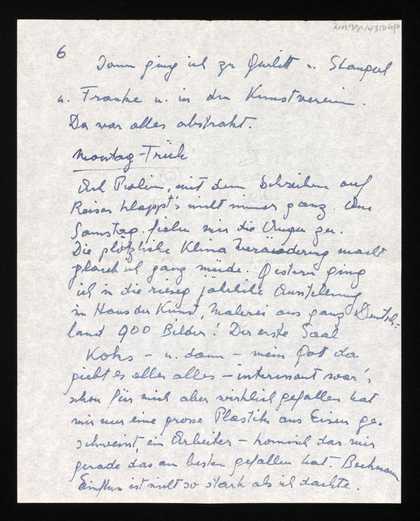 6
Dann ging ich zu Gurlitt u. Stangl
u. Franke u. in den Kunstverein.
Da war alles abstrakt.
Montag-Früh
mit dem Schreiben auf
Reisen klappt's nicht immer ganz
Samstag fielen mir die Augen zu.
Die plötzliche Klima Veränderung macht
mich ganz müde. Gestern ging
ich in die riesig jährliche Ausstellung
im Haus der Kunst, Malerei aus ganz Deutsch=
land 900 Bilder! Der erste Saal
– u. dann – mein Got da
giebt es alles alles – interessant war's
schon für mich aber wirklich gefallen hat
mir nur eine grosse Plastik aus Eisen ge-
schweisst, ein Arbeiter – komisch das mir
gerade das am besten gefallen hat. Beckmann
Einfluss ist nicht so stark als ich dachte.